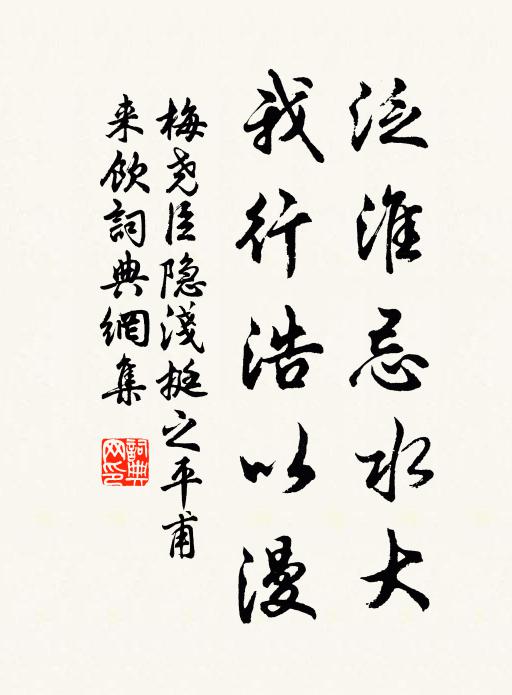 泛淮忌水大
我行浩以漫
梅尧臣隐淺挺之平甫
来飲詞典網集
詞典网印